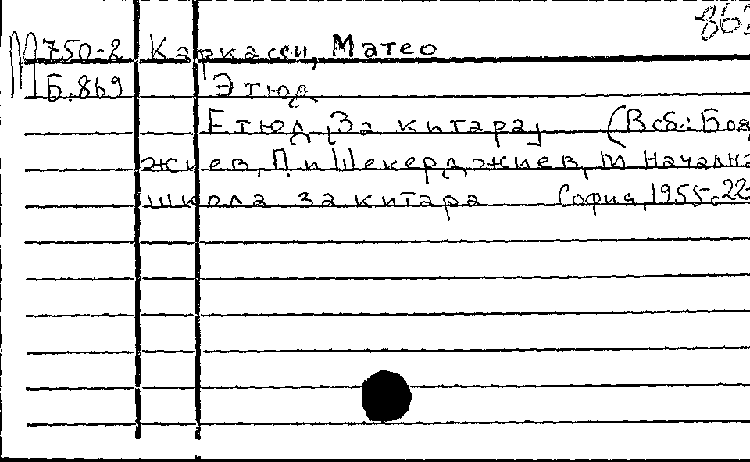 862
М750-2 Каркаси, Матео
Б.869 Этюд
Етюд [За китара] (В сб.: Бояд
жиев, П. и Шекерджиев, М. Начална
школа за китара София, 1955. 22-